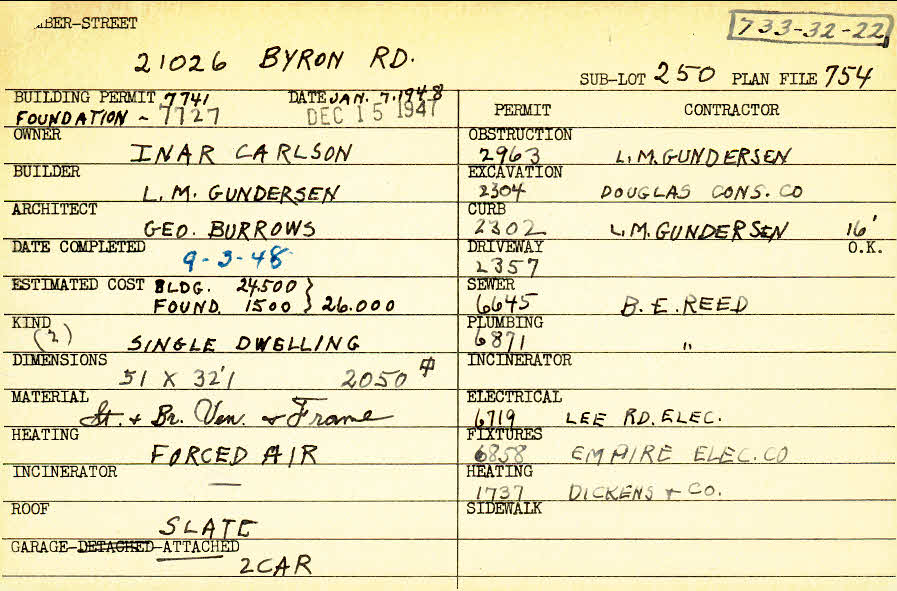 BER-STREET
733-32-22
21026 BYRON RD.
SUB-LOT 250 PLAN FILE 754
BUILDING PERMIT 7741 DATE JAN. 7.1948
FOUNDATION ~ 7727 DEC 15 1947
OWNER
INAR CARLSON
BUILDER
L. M. GUNDERSEN
ARCHITECT
GEO. BURROWS
DATE COMPLETED
9-3-48
ESTIMATED COST BLDG. 24.500 }
FOUND. 1500 } 26.000
KIND
(2) SINGLE DWELLING
DIMENSIONS
51 X 32'1 2050
MATERIAL
St. + Br. Ven. + Frame
HEATING
FORCED AIR
INCINERATOR
—
ROOF
SLATE
GARAGE-DETACHED-ATTACHED
2 CAR
PERMIT CONTRACTOR
OBSTRUCTION
2963 L.M. GUNDERSEN
EXCAVATION
2304 DOUGLAS CONS. CO
CURB
2302 L.M. GUNDERSEN 16'
DRIVEWAY O.K.
2357
SEWER
6645 B. E. REED
PLUMBING
6871 "
INCINERATOR
ELECTRICAL
6719 LEE RD. ELEC.
FIXTURES
6858 EMPIRE ELEC. CO
HEATING
1737 DICKENS + CO.
SIDEWALK